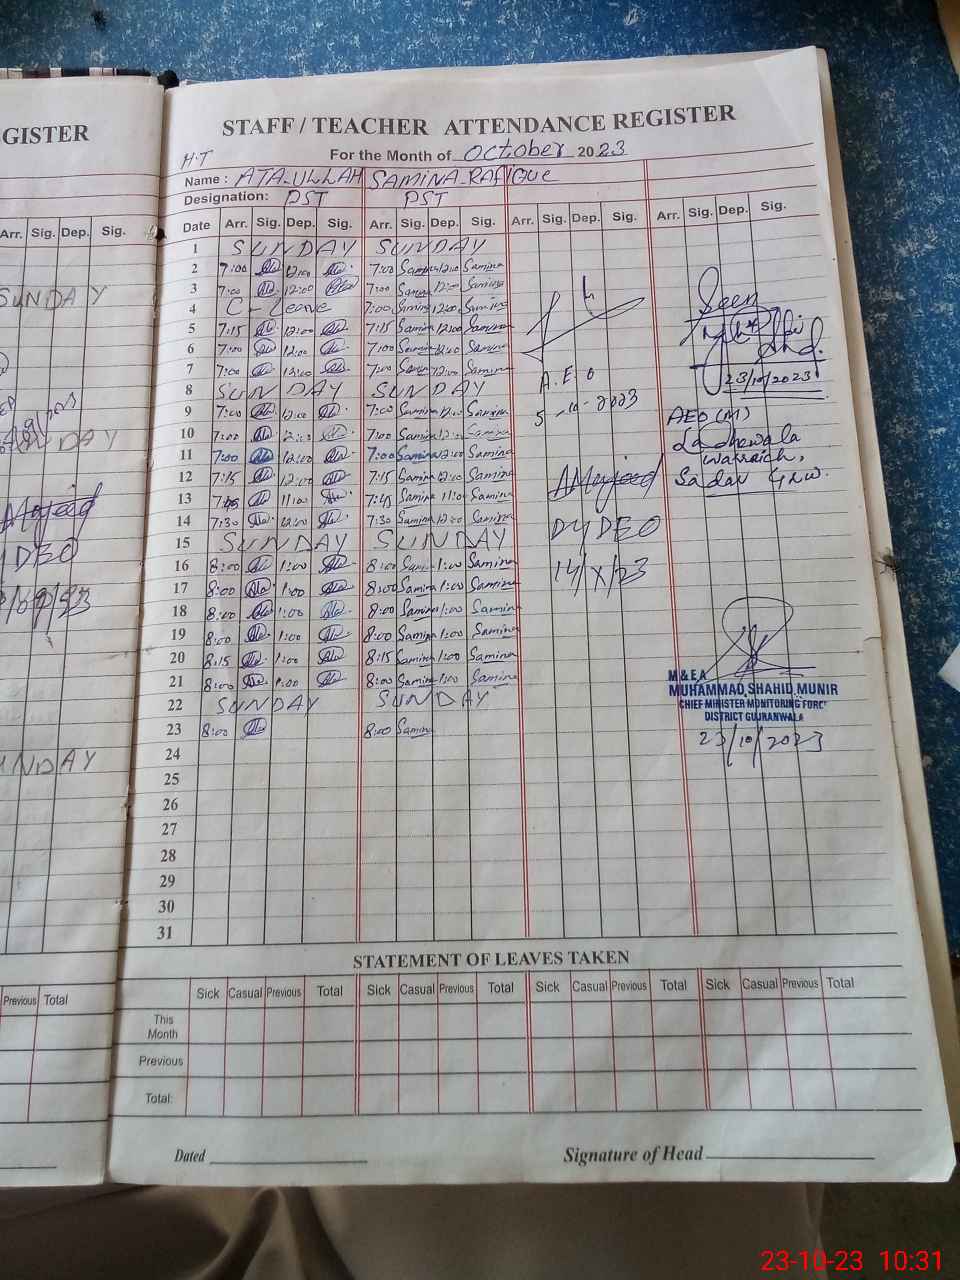 GISTER
STAFF / TEACHER ATTENDANCE REGISTER
H.T
For the Month of October 2023
Name : ATA-ULLAH SAMINA-RAFIQUE
Designation: PST PST
Date Arr. Sig. Dep. Sig. Arr. Sig. Dep. Sig. Arr. Sig. Dep. Sig. Arr. Sig. Dep. Sig.
Arr. Sig. Dep. Sig.
1 SUNDAY SUNDAY
2 7:00 12:00 7:00 Samina 12:00 Samina
3 7:00 12:00 7:00 Samina 12:00 Samina
4 C-Leave 7:00 Samina 12:00 Samina
5 7:15 12:00 7:15 Samina 12:00 Samina
6 7:00 12:00 7:00 Samina 12:00 Samina
7 7:00 12:00 7:00 Samina 12:00 Samina
8 SUNDAY SUNDAY
9 7:00 12:00 7:00 Samina 12:00 Samina
10 7:00 12:00 7:00 Samina 12:00 Samina
11 7:00 12:00 7:00 Samina 12:00 Samina
12 7:15 12:00 7:15 Samina 12:00 Samina
13 7:45 11:00 7:45 Samina 11:00 Samina
14 7:30 12:00 7:30 Samina 12:00 Samina
15 SUNDAY SUNDAY
16 8:00 1:00 8:00 Samina 1:00 Samina
17 8:00 1:00 8:00 Samina 1:00 Samina
18 8:00 1:00 8:00 Samina 1:00 Samina
19 8:00 1:00 8:00 Samina 1:00 Samina
20 8:15 1:00 8:15 Samina 1:00 Samina
21 8:00 1:00 8:00 Samina 1:00 Samina
22 SUNDAY SUNDAY
23 8:00 8:00 Samina
24
25
26
27
28
29
30
31
A.E.O
5-10-2023
AMajeed
DY DEO
14/X/23
Seen
23/10/2023
AEO (M)
Ladhewala
Warraich,
Sadar Grw.
M & E A
MUHAMMAD SHAHID MUNIR
CHIEF MINISTER MONITORING FORCE
DISTRICT GUJRANWALA
23/10/2023
SUNDAY
AMajeed
DEO
UNDAY
STATEMENT OF LEAVES TAKEN
Sick Casual Previous Total Sick Casual Previous Total Sick Casual Previous Total Sick Casual Previous Total
Previous Total
This Month
Previous
Total:
Dated
Signature of Head
23-10-23 10:31